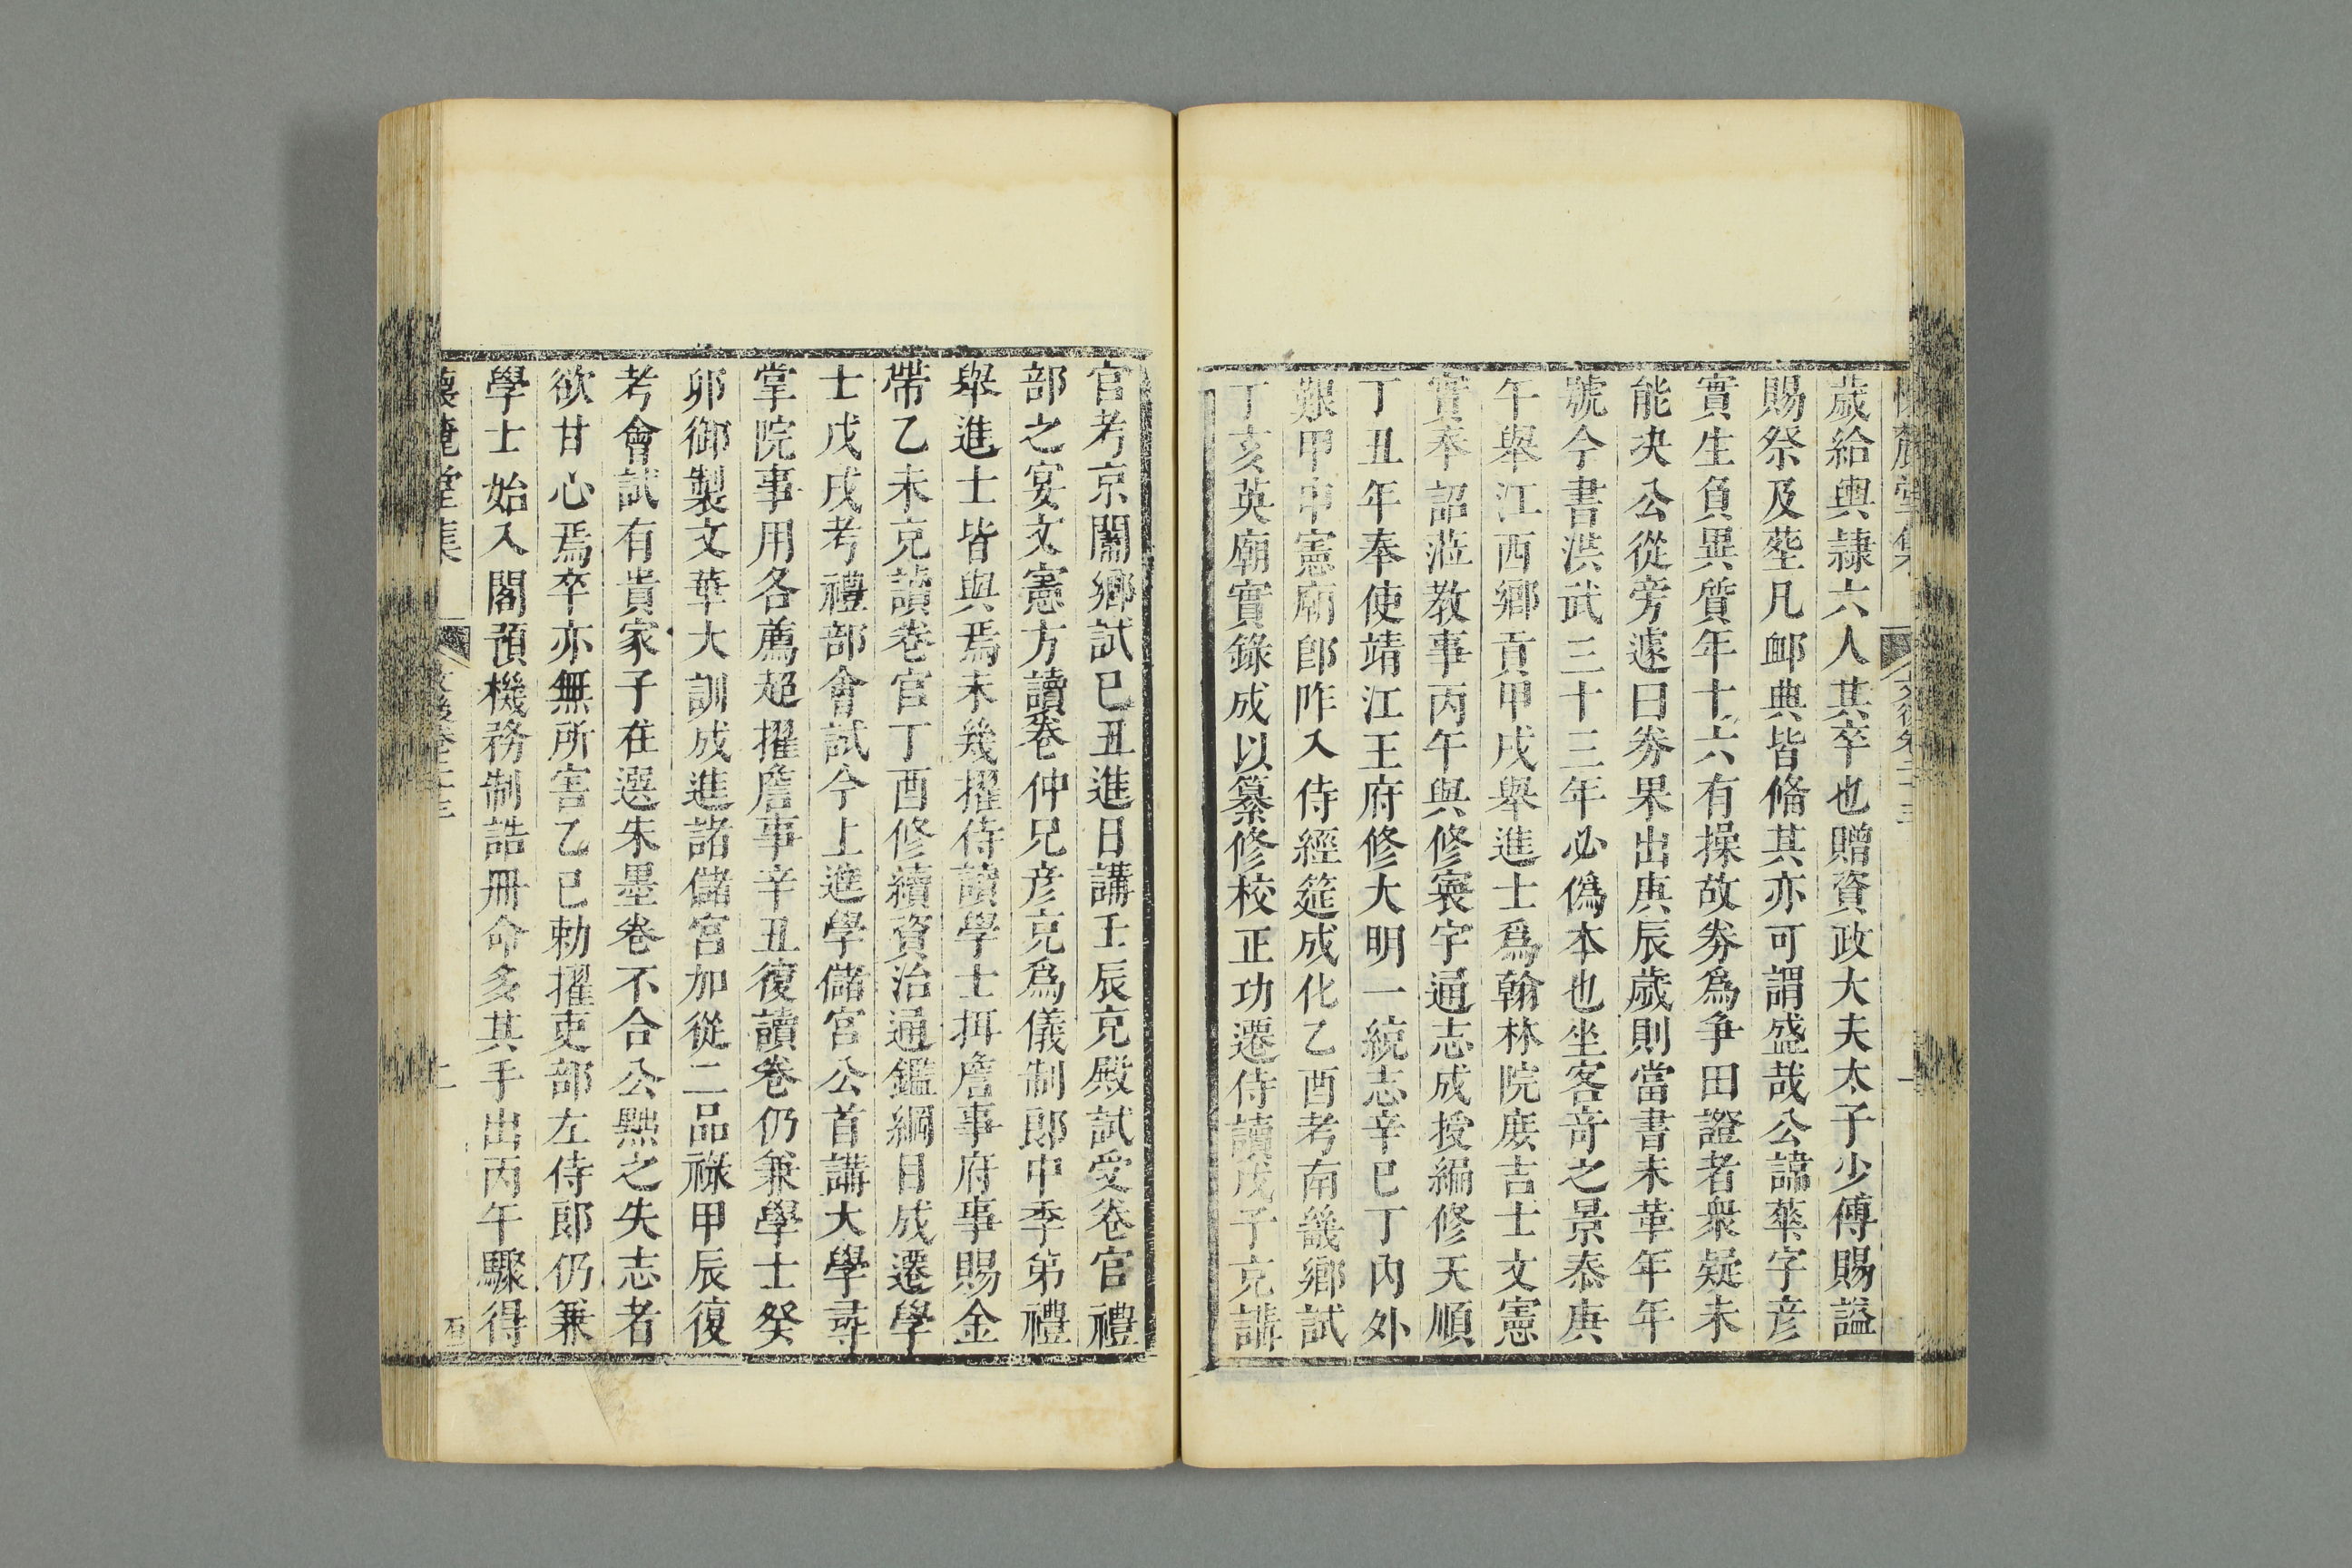 歲給輿隷六人其卒也贈資政大夫太子少傅賜謚
賜祭及塟凡衈典皆脩其亦可謂盛哉公諱華字彦
實生負異質年十六有操故劵爲爭田證者衆疑未
能决公從旁遽曰劵果出庚辰歲則當書未革年年
號今書洪武三十三年必僞本也坐客竒之景泰庚
午舉江西鄉貢甲戌舉進士爲翰林院庶吉士文憲
實奉詔蒞教事丙午與修寰宇通志成授編修天順
丁丑年奉使靖江王府修大明一統志辛巳丁內外
艱甲申憲廟卽阼入侍經筵成化乙酉考南畿鄉試
丁亥英廟實錄成以纂修校正功遷侍讀戊子充講
官考京闈鄉試已丑進日講壬辰充殿試受卷官禮
部之宴文憲方讀卷仲兄彦充爲儀制郎中季第禮
舉進士皆與焉未幾擢侍讀學士掌詹事府事賜金
帶乙未充讀卷官丁酉修續資治通鑑綱目成遷學
士戊戌考禮部會試今上進學儲宮公首講大學尋
掌院事用各薦起擢詹事辛丑復讀卷仍兼學士癸
卯御製文華大訓成進諸儲宮加從二品祿甲辰復
考會試有貴家子在選朱墨卷不合公黜之失志者
欲甘心焉卒亦無所害乙巳勅擢吏部左侍郎仍兼
學士始入閣預機務制誥冊命多其手出丙午驟得
懷麓堂集